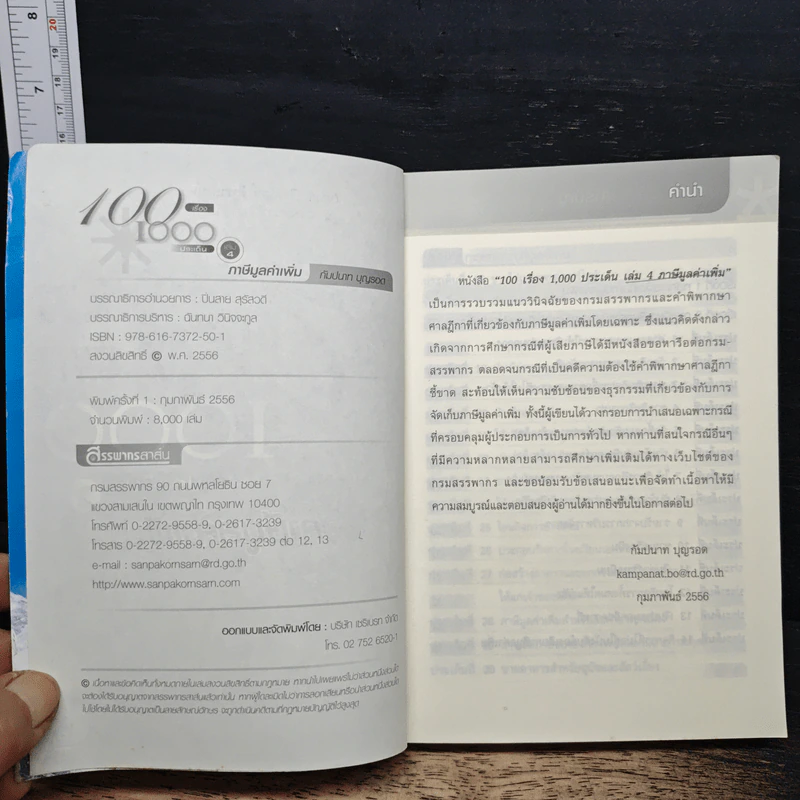 8
20
19
18
7
17
16
100 เรื่อง
1000
ประเด็น
เล่ม 4
ภาษีมูลค่าเพิ่ม กัมปนาท บุญรอด
บรรณาธิการอำนวยการ : ปิ่นสาย สุรัสวดี
บรรณาธิการบริหาร : ฉันทนา วินิจจะกูล
ISBN : 978-616-7372-50-1
สงวนลิขสิทธิ์ © พ.ศ. 2556
พิมพ์ครั้งที่ 1 : กุมภาพันธ์ 2556
จำนวนพิมพ์ : 8,000 เล่ม
สรรพากรสาส์น
กรมสรรพากร 90 ถนนพหลโยธิน ซอย 7
แขวงสามเสนใน เขตพญาไท กรุงเทพ 10400
โทรศัพท์ 0-2272-9558-9, 0-2617-3239
โทรสาร 0-2272-9558-9, 0-2617-3239 ต่อ 12, 13
e-mail : sanpakornsam@rd.go.th
http://www.sanpakornsarn.com
ออกแบบและจัดพิมพ์โดย : บริษัท เซริเบรท จำกัด
โทร. 02 752 6520-1
© เนื้อหาและข้อคิดเห็นทั้งหมดภายในเล่มสงวนลิขสิทธิ์ตามกฎหมาย หากนำไปเผยแพร่ไม่ว่าส่วนหนึ่งส่วนใด
จะต้องได้รับอนุญาตจากสรรพากรสาส์นแล้วเท่านั้น หากผู้ใดละเมิดไม่ว่าการลอกเลียนหรือนำส่วนหนึ่งส่วนใด
ไปใช้โดยไม่ได้รับอนุญาตเป็นลายลักษณ์อักษร จะถูกดำเนินคดีตามที่กฎหมายบัญญัติไว้สูงสุด
คำนำ
หนังสือ "100 เรื่อง 1,000 ประเด็น เล่ม 4 ภาษีมูลค่าเพิ่ม"
เป็นการรวบรวมแนววินิจฉัยของกรมสรรพากรและคำพิพากษา
ศาลฎีกาที่เกี่ยวข้องกับภาษีมูลค่าเพิ่มโดยเฉพาะ ซึ่งแนวคิดดังกล่าว
เกิดจากการศึกษากรณีที่ผู้เสียภาษีได้มีหนังสือขอหารือต่อกรม-
สรรพากร ตลอดจนกรณีที่เป็นคดีความต้องใช้คำพิพากษาศาลฎีกา
ชี้ขาด สะท้อนให้เห็นความซับซ้อนของธุรกรรมที่เกี่ยวข้องกับการ
จัดเก็บภาษีมูลค่าเพิ่ม ทั้งนี้ผู้เขียนได้วางกรอบการนำเสนอเฉพาะกรณี
ที่ครอบคลุมผู้ประกอบการเป็นการทั่วไป หากท่านที่สนใจกรณีอื่นๆ
ที่มีความหลากหลายสามารถศึกษาเพิ่มเติมได้ทางเว็บไซต์ของ
กรมสรรพากร และขอน้อมรับข้อเสนอแนะเพื่อจัดทำเนื้อหาให้มี
ความสมบูรณ์และตอบสนองผู้อ่านได้มากยิ่งขึ้นในโอกาสต่อไป
กัมปนาท บุญรอด
kampanat.bo@rd.go.th
กุมภาพันธ์ 2556